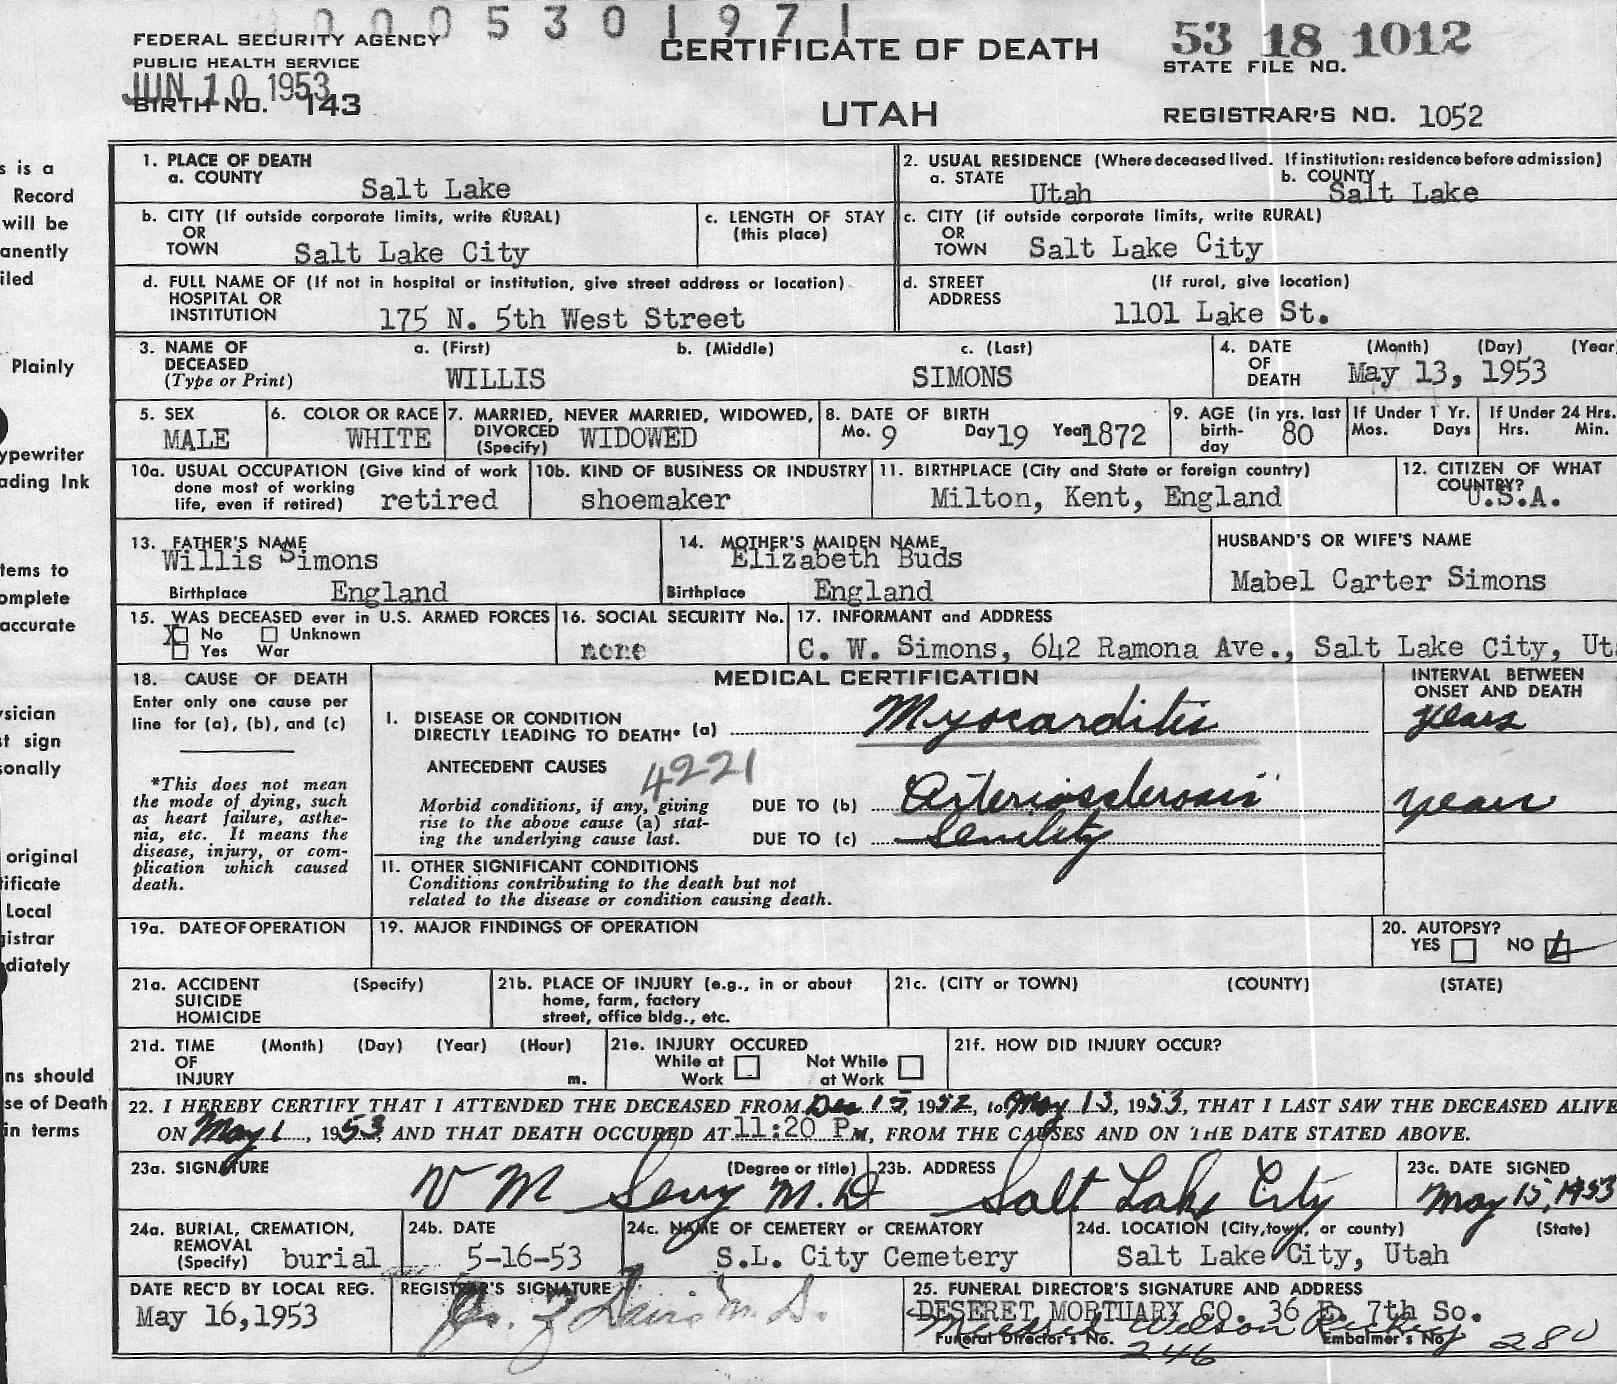 0 0 0 5 3 0 1 9 7 1
FEDERAL SECURITY AGENCY
PUBLIC HEALTH SERVICE
JUN 10 1953
BIRTH NO. 143
CERTIFICATE OF DEATH
UTAH
53 18 1012
STATE FILE NO.
REGISTRAR'S NO. 1052
s is a
Record
will be
anently
iled
Plainly
ypewriter
ading Ink
tems to
omplete
accurate
ysician
st sign
sonally
original
tificate
Local
gistrar
diately
ns should
se of Death
in terms
1. PLACE OF DEATH
a. COUNTY
Salt Lake
2. USUAL RESIDENCE (Where deceased lived. If institution: residence before admission)
a. STATE Utah b. COUNTY Salt Lake
b. CITY (If outside corporate limits, write RURAL)
OR
TOWN Salt Lake City
c. LENGTH OF STAY
(this place)
c. CITY (if outside corporate limits, write RURAL)
OR
TOWN Salt Lake City
d. FULL NAME OF (If not in hospital or institution, give street address or location)
HOSPITAL OR
INSTITUTION 175 N. 5th West Street
d. STREET (If rural, give location)
ADDRESS
1101 Lake St.
3. NAME OF a. (First) b. (Middle) c. (Last)
DECEASED
(Type or Print) WILLIS SIMONS
4. DATE (Month) (Day) (Year
OF
DEATH May 13, 1953
5. SEX
MALE
6. COLOR OR RACE
WHITE
7. MARRIED, NEVER MARRIED, WIDOWED,
DIVORCED
(Specify) WIDOWED
8. DATE OF BIRTH
Mo. 9 Day 19 Year 1872
9. AGE (in yrs. last
birth-
day 80
If Under 1 Yr.
Mos. Days
If Under 24 Hrs.
Hrs. Min.
10a. USUAL OCCUPATION (Give kind of work
done most of working
life, even if retired) retired
10b. KIND OF BUSINESS OR INDUSTRY
shoemaker
11. BIRTHPLACE (City and State or foreign country)
Milton, Kent, England
12. CITIZEN OF WHAT
COUNTRY?
U.S.A.
13. FATHER'S NAME
Willis Simons
Birthplace England
14. MOTHER'S MAIDEN NAME
Elizabeth Buds
Birthplace England
HUSBAND'S OR WIFE'S NAME
Mabel Carter Simons
15. WAS DECEASED ever in U.S. ARMED FORCES
X No Unknown
Yes War
16. SOCIAL SECURITY No.
none
17. INFORMANT and ADDRESS
C. W. Simons, 642 Ramona Ave., Salt Lake City, Ut
18. CAUSE OF DEATH
Enter only one cause per
line for (a), (b), and (c)
*This does not mean
the mode of dying, such
as heart failure, asthe-
nia, etc. It means the
disease, injury, or com-
plication which caused
death.
MEDICAL CERTIFICATION
INTERVAL BETWEEN
ONSET AND DEATH
I. DISEASE OR CONDITION
DIRECTLY LEADING TO DEATH* (a) Myocarditis years
ANTECEDENT CAUSES 4221
Morbid conditions, if any, giving
rise to the above cause (a) stat-
ing the underlying cause last.
DUE TO (b) Arteriosclerosis years
DUE TO (c) Senility
II. OTHER SIGNIFICANT CONDITIONS
Conditions contributing to the death but not
related to the disease or condition causing death.
19a. DATE OF OPERATION
19. MAJOR FINDINGS OF OPERATION
20. AUTOPSY?
YES NO
21a. ACCIDENT (Specify)
SUICIDE
HOMICIDE
21b. PLACE OF INJURY (e.g., in or about
home, farm, factory
street, office bldg., etc.
21c. (CITY or TOWN) (COUNTY) (STATE)
21d. TIME (Month) (Day) (Year) (Hour)
OF
INJURY m.
21e. INJURY OCCURED
While at Not While
Work at Work
21f. HOW DID INJURY OCCUR?
22. I HEREBY CERTIFY THAT I ATTENDED THE DECEASED FROM Dec 15, 1952, to May 13, 1953, THAT I LAST SAW THE DECEASED ALIVE
ON May 1, 1953, AND THAT DEATH OCCURED AT 11:20 P M, FROM THE CAUSES AND ON THE DATE STATED ABOVE.
23a. SIGNATURE (Degree or title)
V M Sevy M.D
23b. ADDRESS
Salt Lake City
23c. DATE SIGNED
May 15, 1953
24a. BURIAL, CREMATION,
REMOVAL
(Specify) burial
24b. DATE
5-16-53
24c. NAME OF CEMETERY or CREMATORY
S.L. City Cemetery
24d. LOCATION (City, town, or county) (State)
Salt Lake City, Utah
DATE REC'D BY LOCAL REG.
May 16,1953
REGISTRAR'S SIGNATURE
M. D.
25. FUNERAL DIRECTOR'S SIGNATURE AND ADDRESS
DESERET MORTUARY CO. 36 E. 7th So.
Wilson
Funeral Director's No. 246 Embalmer's No. 280